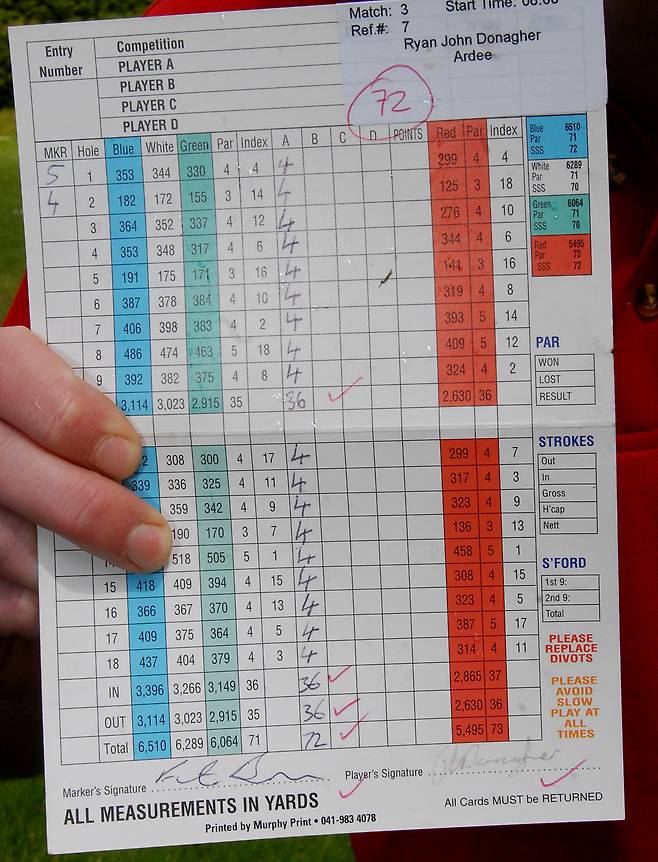 Match: 3 Start Time: 08:00
Ref.#: 7
Ryan John Donagher
Ardee
72
Entry Number
Competition
PLAYER A
PLAYER B
PLAYER C
PLAYER D
MKR Hole Blue White Green Par Index A B C D POINTS Red Par Index
5 1 353 344 330 4 4 4 299 4 4
4 2 182 172 155 3 14 4 125 3 18
3 364 352 337 4 12 4 276 4 10
4 353 348 317 4 6 4 344 4 6
5 191 175 171 3 16 4 141 3 16
6 387 378 384 4 10 4 319 4 8
7 406 398 383 4 2 4 393 5 14
8 486 474 463 5 18 4 409 5 12
9 392 382 375 4 8 4 324 4 2
3,114 3,023 2,915 35 36 2,630 36
308 300 4 17 4 299 4 7
339 336 325 4 11 4 317 4 3
359 342 4 9 4 323 4 9
190 170 3 7 4 136 3 13
518 505 5 1 4 458 5 1
15 418 409 394 4 15 4 308 4 15
16 366 367 370 4 13 4 323 4 5
17 409 375 364 4 5 4 387 5 17
18 437 404 379 4 3 4 314 4 11
IN 3,396 3,266 3,149 36 36 2,865 37
OUT 3,114 3,023 2,915 35 36 2,630 36
Total 6,510 6,289 6,064 71 72 5,495 73
Blue 6510
Par 71
SSS 72
White 6289
Par 71
SSS 70
Green 6064
Par 71
SSS 70
Red 5495
Par 73
SSS 72
PAR
WON
LOST
RESULT
STROKES
Out
In
Gross
H'cap
Nett
S'FORD
1st 9:
2nd 9:
Total
PLEASE
REPLACE
DIVOTS
PLEASE
AVOID
SLOW
PLAY AT
ALL
TIMES
Marker's Signature Player's Signature
ALL MEASUREMENTS IN YARDS
All Cards MUST be RETURNED
Printed by Murphy Print • 041-983 4078